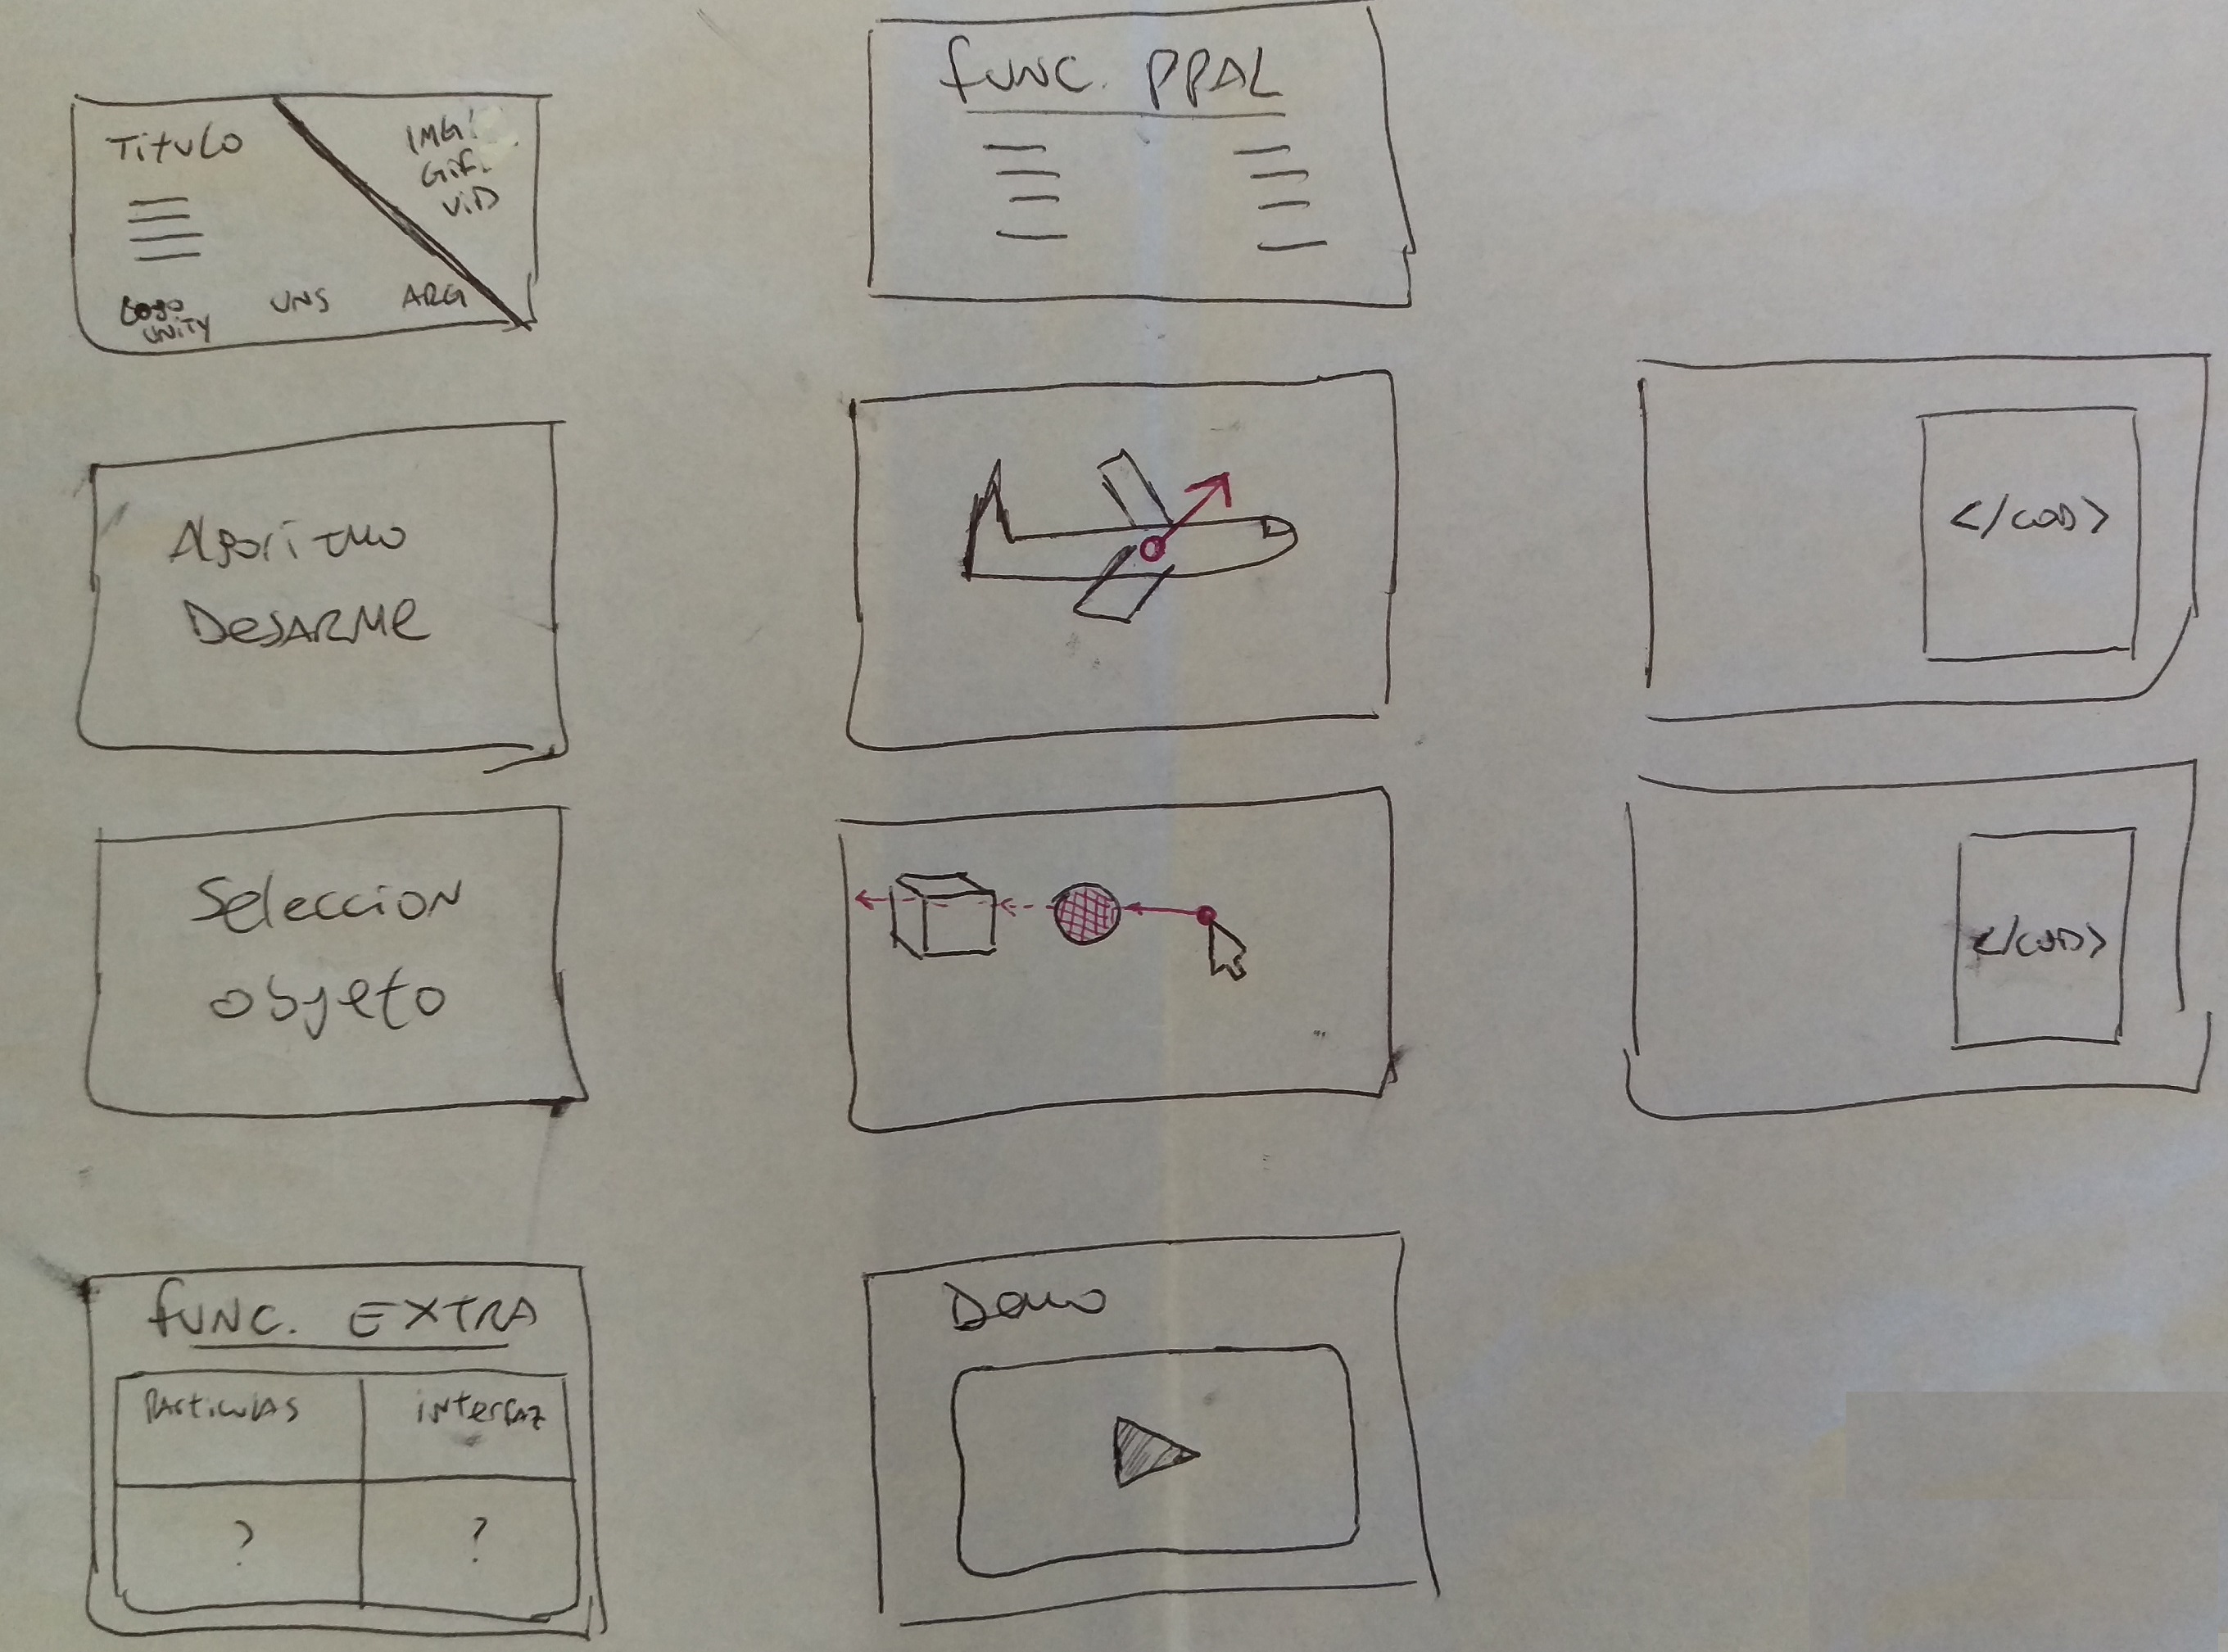 Titulo
IMG
Gif
ViD
Logo UNS ARG
UNiTY
fUNC. PPAL
Algoritmo
DesARMe
</COD>
Seleccion
objeto
</COD>
fUNC. EXTRA
PARticulAS interfAZ
? ?
Demo